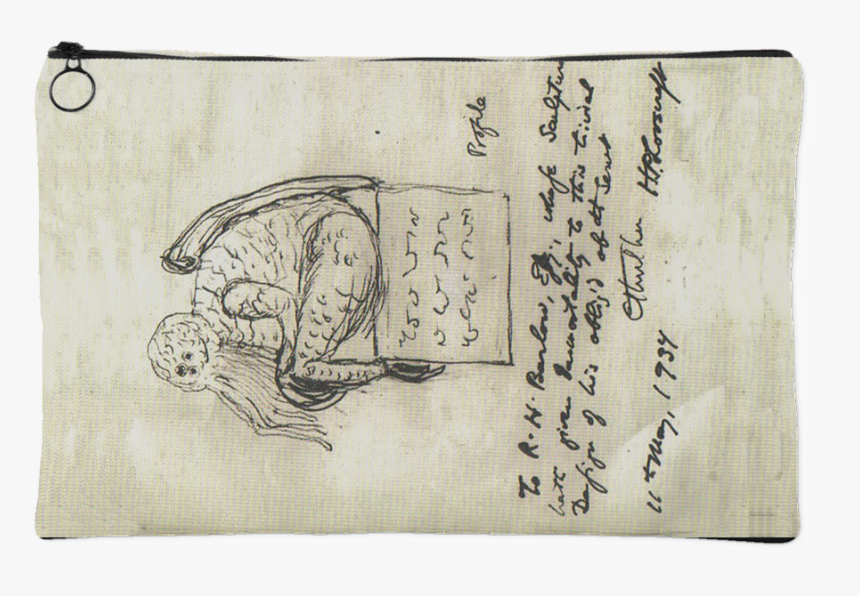 Profile
To R. H. Barlow, Esq., whose Sculpture
hath given Immortality to this trivial
Design of his oblig'd ob't Servt
H.P. Lovecraft
11th May, 1934
Cthulhu